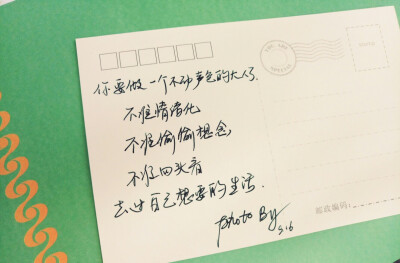 你要做一个不动声色的大人了.
不准情绪化
不准偷偷想念,
不准回头看
去过自己想要的生活.
photo By
9.6
邮政编码: